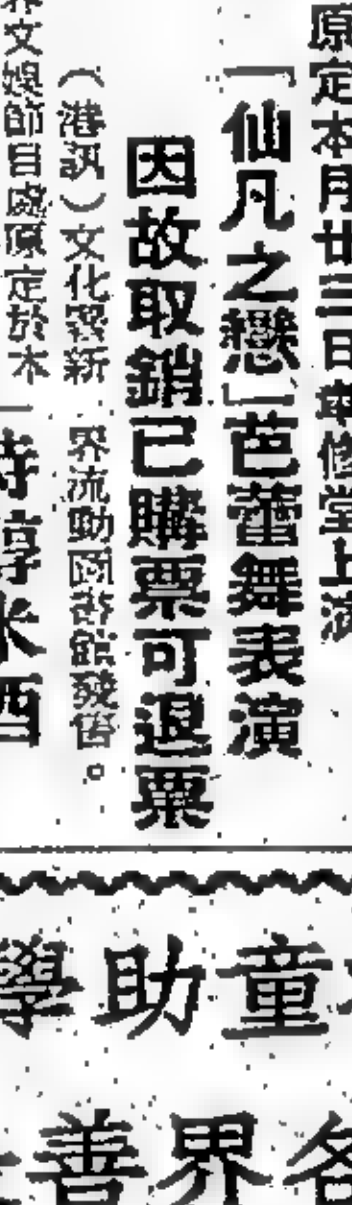 原定本月廿三日車修堂上演
「仙凡之戀」芭蕾舞表演
因故取銷已購票可退票
（港訊）文化署新
界文娛節目處原定於本
界流動圖書館發售。
學助童
善界各